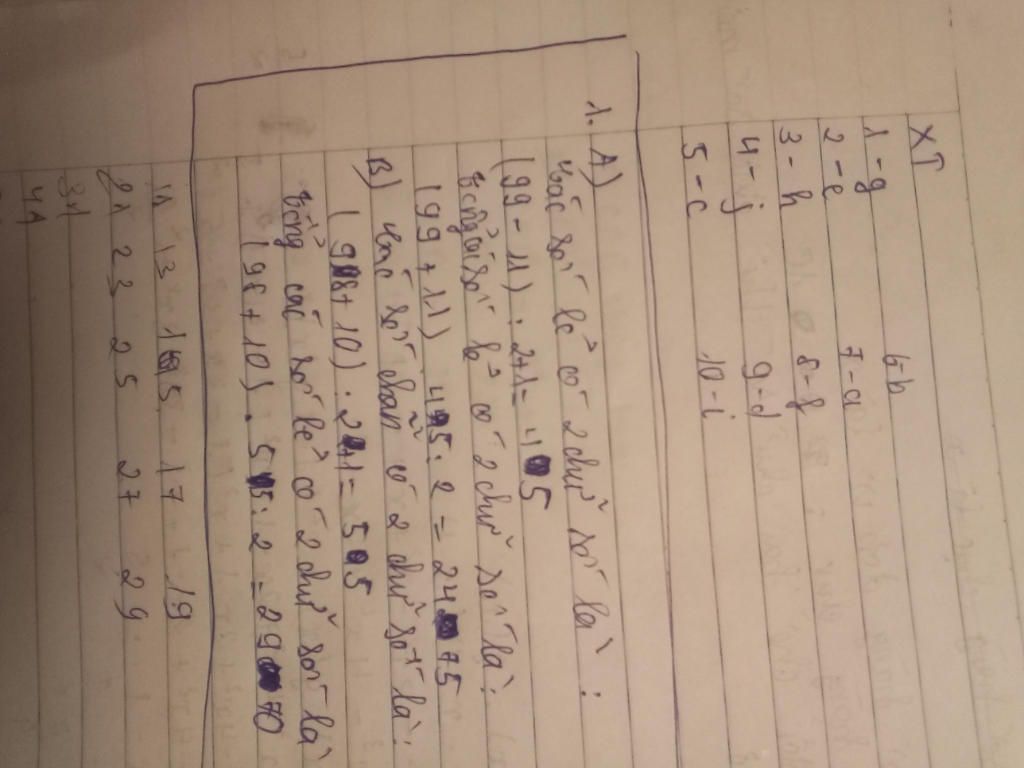 XT
1 - g 6 - b
2 - e 7 - a
3 - h 8 - f
4 - j 9 - d
5 - c 10 - i
1. A) Các số lẻ có 2 chữ số là :
(99 - 11) : 2+1 = 45
số lẻ có 2 chữ số là :
(99 + 11) 45 : 2 = 2475
B) Các số chẵn có 2 chữ số là :
(98 + 10) : 2+1 = 55
Tổng các số lẻ có 2 chữ số là
(98 + 10) . 55 : 2 = 2970
11 13 15 17 19
21 23 25 27 29
31
41